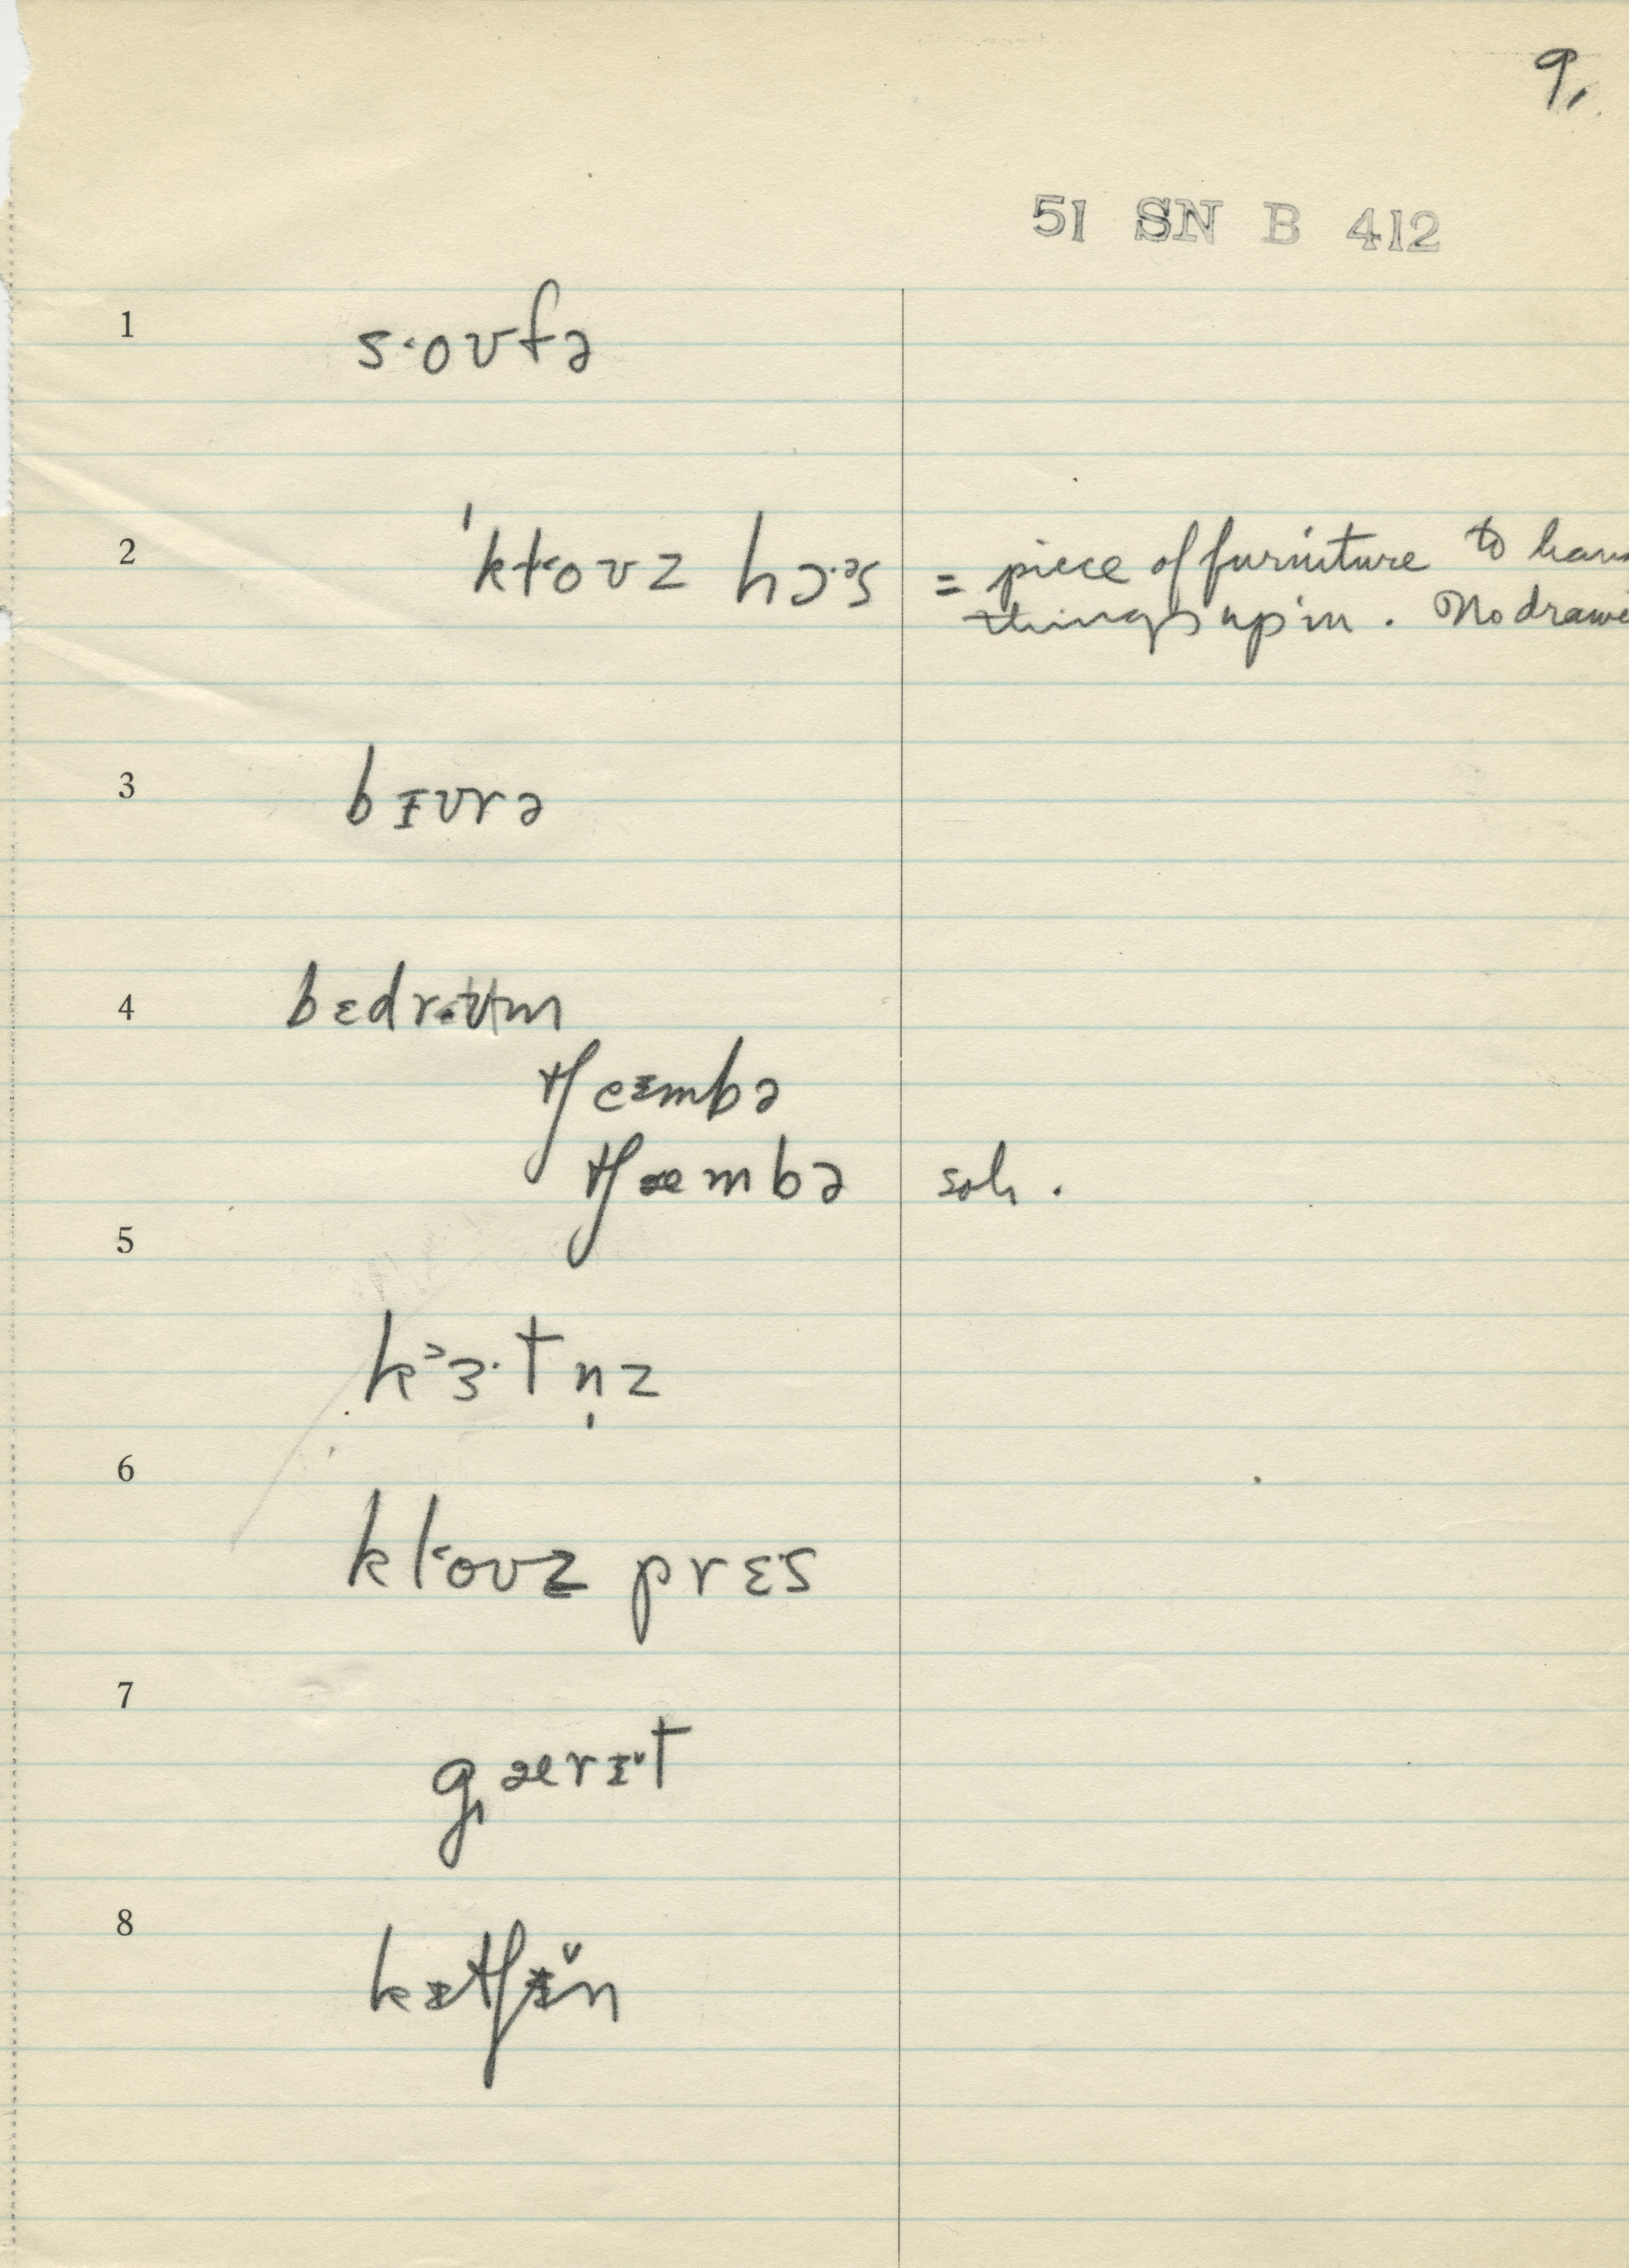 9,
51 SN B 412
1 s·˂oʊfə
2 ˈkɫ˂oʊz hɔ·ᵊs = piece of furniture to
things up in. No
3 bɪʊrə
4 bɛdr˂ʉm
tʃeɪmbə
tʃæmbə soh.
5 k˃ɜ·tn̩z
6 kl˂oʊz prɛs
7 g̩ærɪ̌t
8 kɪtʃɪ̌n